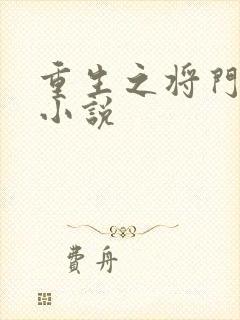 重生之将门
小説
費舟